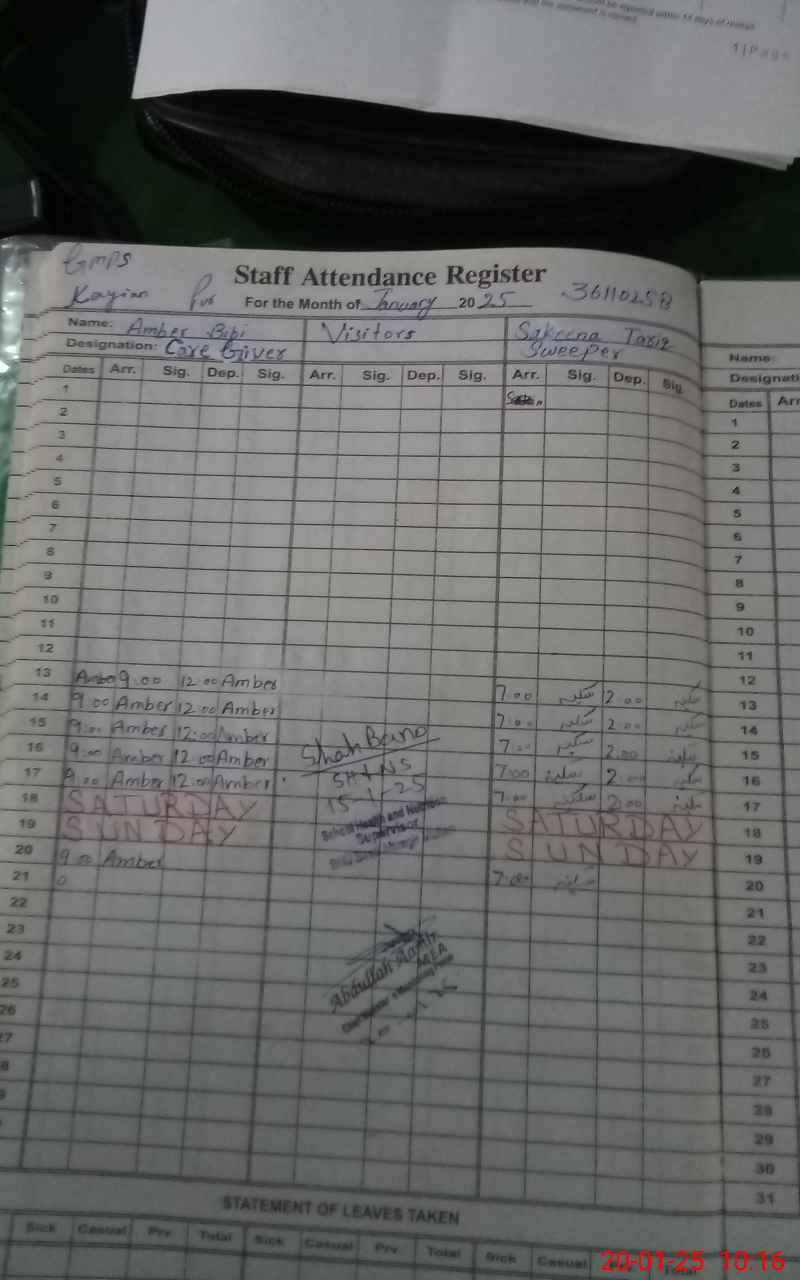 1 | Page
GMPS
Staff Attendance Register
Kayian Pvt For the Month of January 2025 36110258
Name: Amber Bibi Visitors Sakeena Tariq
Designation: Care Giver Sweeper
Name:
Designati
Dates Arr. Sig. Dep. Sig. Arr. Sig. Dep. Sig. Arr. Sig. Dep. Sig.
Dates Arr
1 1
2 2
3 3
4 4
5 5
6 6
7 7
8 8
9 9
10 10
11 11
12 12
13 Amber 9.00 12.00 Amber 7.00 سکینہ 2.00 سکینہ 13
14 9.00 Amber 12.00 Amber 7.00 سکینہ 2.00 سکینہ 14
15 9:00 Amber 12:00 Amber 7.00 سکینہ 2.00 سکینہ 15
16 9:00 Amber 12.00 Amber 7.00 سکینہ 2.00 سکینہ 16
17 9.00 Amber 12.00 Amber 7.00 سکینہ 2.00 سکینہ 17
Shah Bano
SH&NS
15-1-25
School Health and Nutrition
Supervisor
18 SATURDAY SATURDAY 18
19 SUNDAY SUNDAY 19
20 9.00 Amber 7.00 سکینہ 20
21 0 21
22 22
23 23
24 24
25 25
26 26
27 27
8 28
9 29
30
31
Abdullah
MEA
STATEMENT OF LEAVES TAKEN
Sick Casual Prv. Total Sick Casual Prv. Total Sick Casual Total
20-01-25 10:16